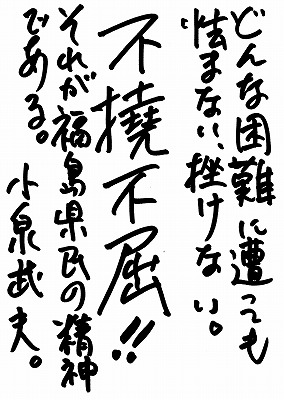 どんな困難に遭っても
怯まない、挫けない。
不撓不屈!!
それが福島県民の精神
である。
小泉武夫。